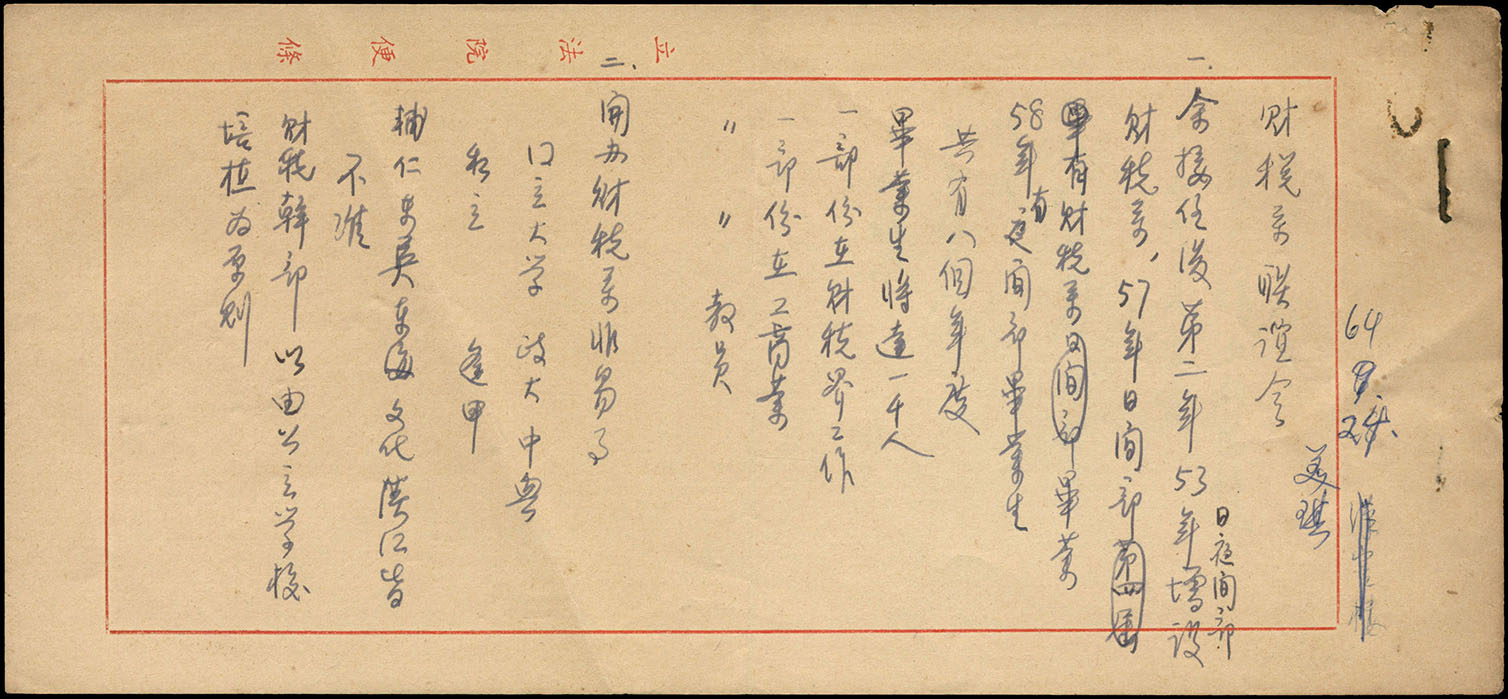 立法院便條
64
美琪
財稅系聯誼会
一、余接任後第二年53年增設
日夜間部
財稅系，57年日間部第四届
有財稅系日間部畢業
58年有夜間部畢業生
共有八個年度
畢業生將達一千人
一部份在財稅界工作
一部份在工商業
〃 〃 教員
二、開办財稅系非易事
口立大学 政大 中興
私立 逢甲
輔仁 東吳 東海 文化 淡江皆
不准
財稅幹部 以由公立学校
培植为原則